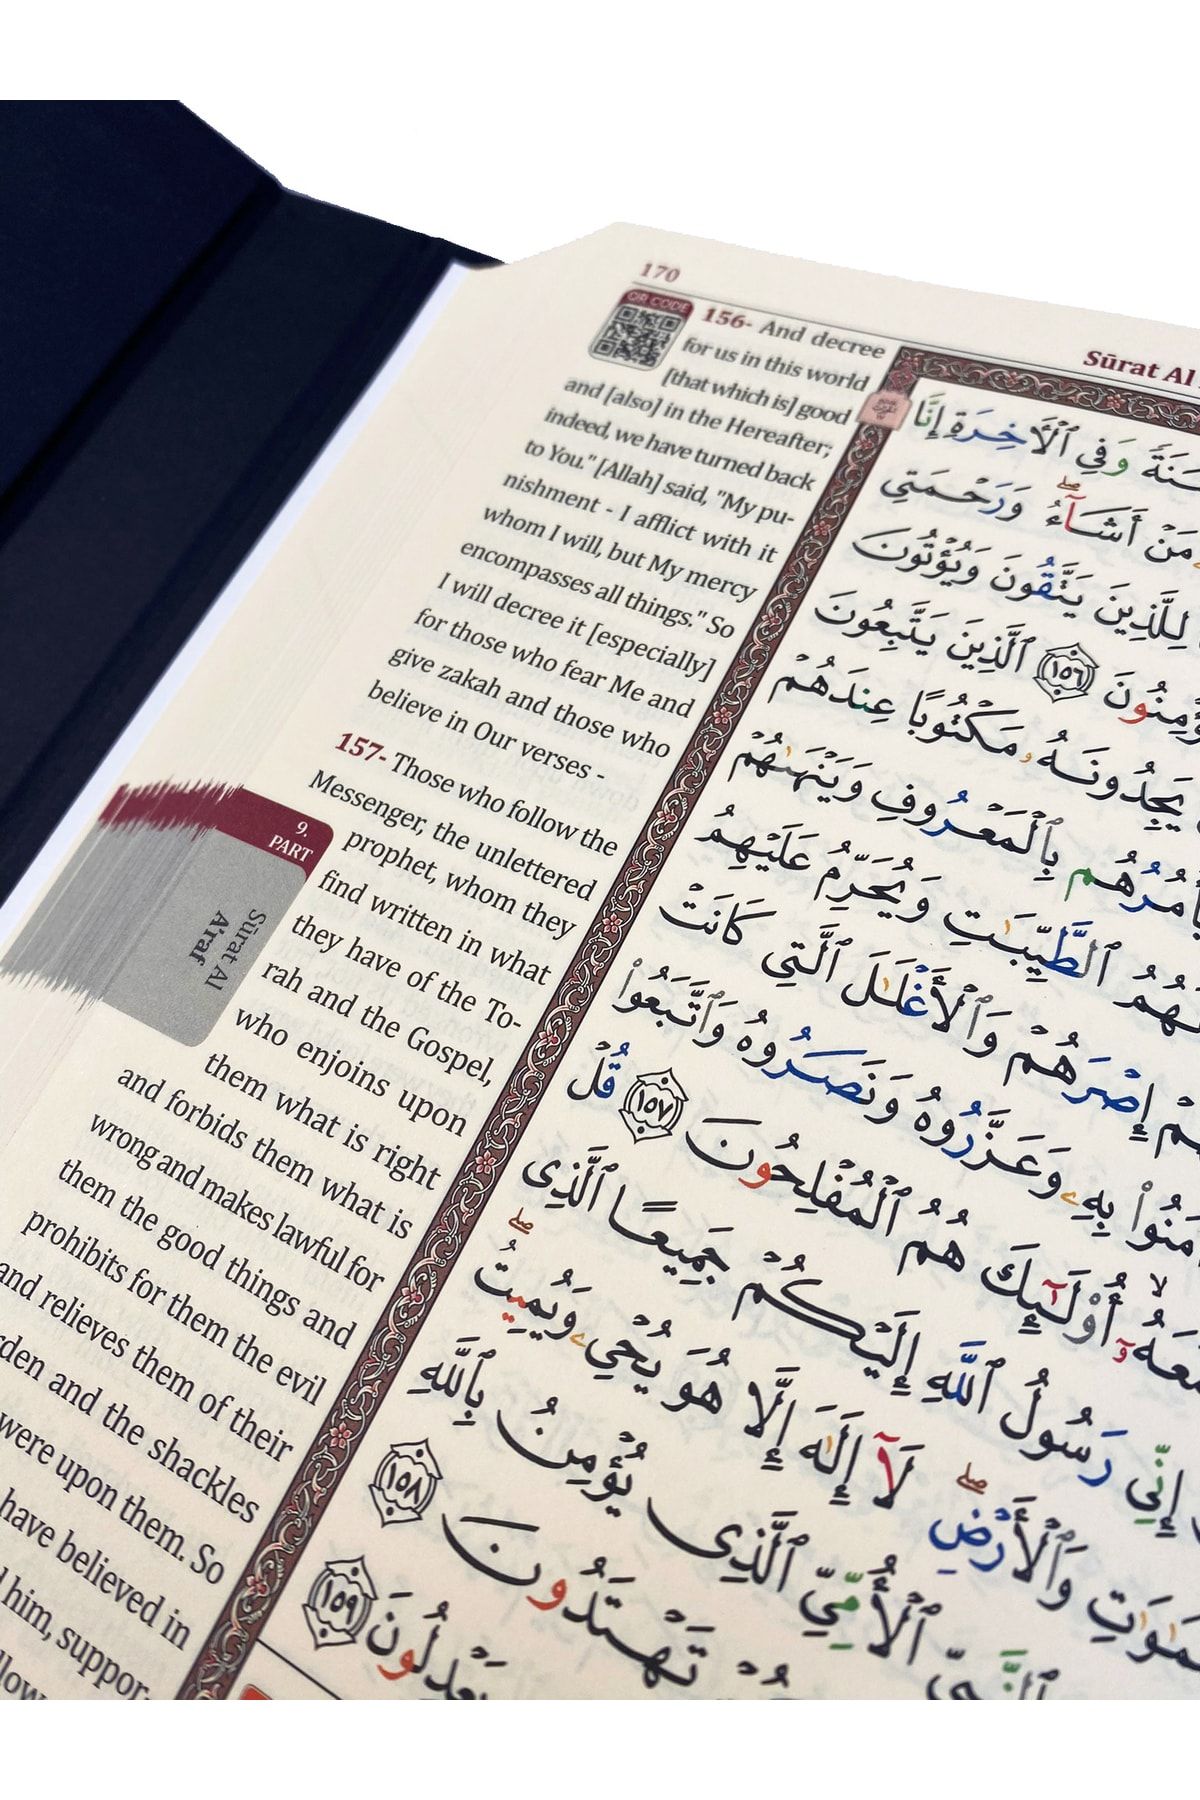 170
QR CODE
Sūrat Al
156- And decree
for us in this world
[that which is] good
and [also] in the Hereafter;
indeed, we have turned back
to You." [Allah] said, "My pu-
nishment - I afflict with it
whom I will, but My mercy
encompasses all things." So
I will decree it [especially]
for those who fear Me and
give zakah and those who
believe in Our verses -
157- Those who follow the
Messenger, the unlettered
prophet, whom they
find written in what
they have of the To-
rah and the Gospel,
who enjoins upon
them what is right
and forbids them what is
wrong and makes lawful for
them the good things and
prohibits for them the evil
and relieves them of their
and the shackles
were upon them. So
have believed in
him, suppor-
9.
PART
Sūrat Al
A'raf
وَفِي ٱلْأٓخِرَةِ إِنَّا
مَنْ أَشَآءُۖ وَرَحْمَتِي
لِلَّذِينَ يَتَّقُونَ وَيُؤْتُونَ
١٥٦ ٱلَّذِينَ يَتَّبِعُونَ
يَجِدُونَهُۥ مَكْتُوبًا عِندَهُمْ
بِٱلْمَعْرُوفِ وَيَنْهَىٰهُمْ
ٱلطَّيِّبَٰتِ وَيُحَرِّمُ عَلَيْهِمُ
إِصْرَهُمْ وَٱلْأَغْلَٰلَ ٱلَّتِي كَانَتْ
بِهِۦ وَعَزَّرُوهُ وَنَصَرُوهُ وَٱتَّبَعُوا۟
أُو۟لَٰٓئِكَ هُمُ ٱلْمُفْلِحُونَ ١٥٧ قُلْ
إِنِّي رَسُولُ ٱللَّهِ إِلَيْكُمْ جَمِيعًا ٱلَّذِي
وَٱلْأَرْضِۖ لَآ إِلَٰهَ إِلَّا هُوَ يُحْيِۦ وَيُمِيتُۖ
ٱلنَّبِيِّ ٱلْأُمِّيِّ ٱلَّذِي يُؤْمِنُ بِٱللَّهِ
تَهْتَدُونَ ١٥٨
يَعْدِلُونَ ١٥٩